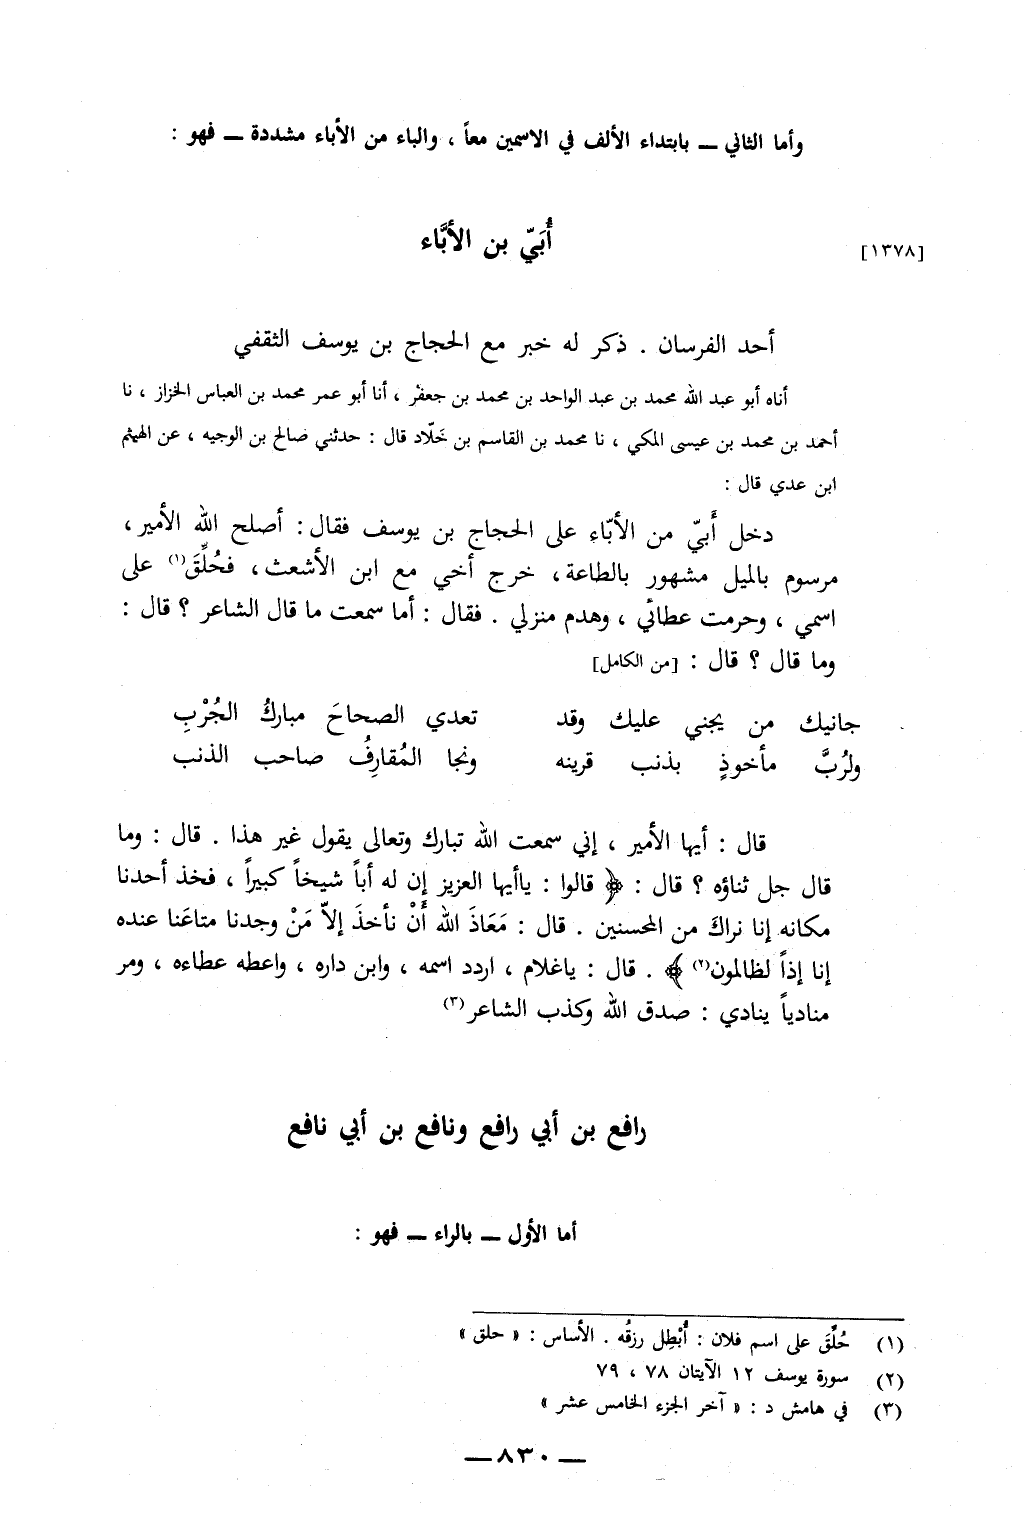 وأما الثاني ــ بابتداء الألف في الاسمين معاً ، والباء من الأباء مشددة ــ فهو :
[١٣٧٨] أُبَيّ بن الأبَّاء
أحد الفرسان . ذكر له خبر مع الحجاج بن يوسف الثقفي
أناه أبو عبد الله محمد بن عبد الواحد بن محمد بن جعفر ، أنا أبو عمر محمد بن العباس الخزاز ، نا
أحمد بن محمد بن عيسى المكي ، نا محمد بن القاسم بن خَلّاد قال : حدثني صالح بن الوجيه ، عن الهيثم
ابن عدي قال :
دخل أَبيّ من الأبّاء على الحجاج بن يوسف فقال : أصلح الله الأمير ،
مرسوم بالميل مشهور بالطاعة ، خرج أخي مع ابن الأشعث ، فحُلِّقَ(١) على
اسمي ، وحرمت عطائي ، وهدم منزلي . فقال : أما سمعت ما قال الشاعر ؟ قال :
وما قال ؟ قال : [من الكامل]
جانيك من يجني عليك وقد تعدي الصحاحَ مباركُ الجُرْبِ
ولرُبَّ مأخوذٍ بذنب قرينه ونجا المُقارِفُ صاحب الذنب
قال : أيها الأمير ، إني سمعت الله تبارك وتعالى يقول غير هذا . قال : وما
قال جل ثناؤه ؟ قال : ﴿ قالوا : ياأيها العزيز إن له أباً شيخاً كبيراً ، فخذ أحدنا
مكانه إنا نراكَ من المحسنين . قال : مَعَاذَ الله أَنْ نأخذَ إلاّ مَنْ وجدنا متاعَنا عنده
إنا إذاً لظالمون(٢) ﴾ . قال : ياغلام ، اردد اسمه ، وابن داره ، واعطه عطاءه ، ومر
منادياً ينادي : صدق الله وكذب الشاعر(٣)
رافع بن أبي رافع ونافع بن أبي نافع
أما الأول ــ بالراء ــ فهو :
(١) حُلِّقَ على اسم فلان : أُبْطِل رزقُه . الأساس : « حلق »
(٢) سورة يوسف ١٢ الآيتان ٧٨ ، ٧٩
(٣) في هامش د : « آخر الجزء الخامس عشر »
ــ ٨٣٠ ــ